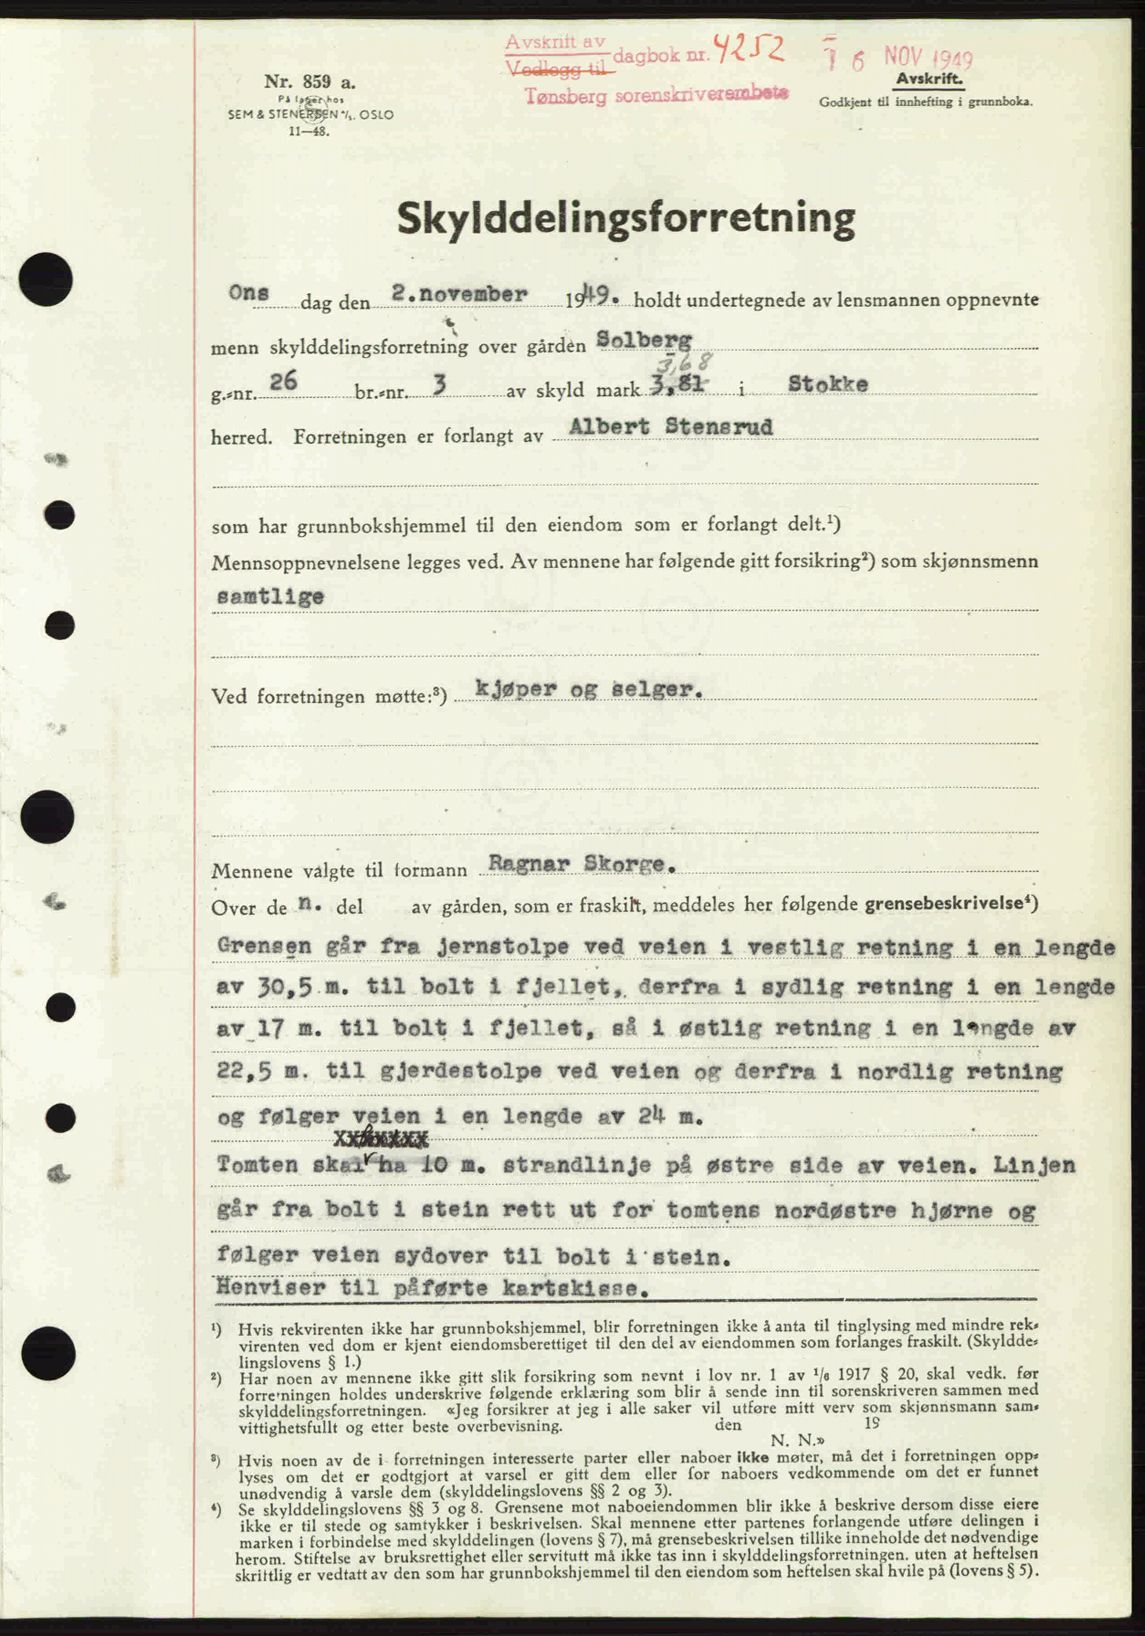 Avskrift av
Vedlegg til dagbok nr. 4252
Tønsberg sorenskriverembete
16 NOV 1949
Avskrift.
Godkjent til innhefting i grunnboka.
Nr. 859 a.
På lager hos
SEM & STENERSEN A/S. OSLO
11—48.
Skylddelingsforretning
Ons dag den 2. november 1949. holdt undertegnede av lensmannen oppnevnte
menn skylddelingsforretning over gården Solberg
3,68
g.-nr. 26 br.-nr. 3 av skyld mark 3,81 i Stokke
herred. Forretningen er forlangt av Albert Stensrud
som har grunnbokshjemmel til den eiendom som er forlangt delt.¹)
Mennsoppnevnelsene legges ved. Av mennene har følgende gitt forsikring²) som skjønnsmenn
samtlige
Ved forretningen møtte:³) kjøper og selger.
Mennene valgte til formann Ragnar Skorge.
Over de n. del av gården, som er fraskilt, meddeles her følgende grensebeskrivelse⁴)
Grensen går fra jernstolpe ved veien i vestlig retning i en lengde
av 30,5 m. til bolt i fjellet, derfra i sydlig retning i en lengde
av 17 m. til bolt i fjellet, så i østlig retning i en lengde av
22,5 m. til gjerdestolpe ved veien og derfra i nordlig retning
og følger veien i en lengde av 24 m.
Tomten skal ha 10 m. strandlinje på østre side av veien. Linjen
går fra bolt i stein rett ut for tomtens nordøstre hjørne og
følger veien sydover til bolt i stein.
Henviser til påførte kartskisse.
¹) Hvis rekvirenten ikke har grunnbokshjemmel, blir forretningen ikke å anta til tinglysing med mindre rek-
virenten ved dom er kjent eiendomsberettiget til den del av eiendommen som forlanges fraskilt. (Skyldde-
lingslovens § 1.)
²) Har noen av mennene ikke gitt slik forsikring som nevnt i lov nr. 1 av 1/6 1917 § 20, skal vedk. før
forretningen holdes underskrive følgende erklæring som blir å sende inn til sorenskriveren sammen med
skylddelingsforretningen. «Jeg forsikrer at jeg i alle saker vil utføre mitt verv som skjønnsmann sam-
vittighetsfullt og etter beste overbevisning. den 19
N. N.»
³) Hvis noen av de i forretningen interesserte parter eller naboer ikke møter, må det i forretningen opp-
lyses om det er godtgjort at varsel er gitt dem eller for naboers vedkommende om det er funnet
unødvendig å varsle dem (skylddelingslovens §§ 2 og 3).
⁴) Se skylddelingslovens §§ 3 og 8. Grensene mot naboeiendommen blir ikke å beskrive dersom disse eiere
ikke er til stede og samtykker i beskrivelsen. Skal mennene etter partenes forlangende utføre delingen i
marken i forbindelse med skylddelingen (lovens § 7), må grensebeskrivelsen tillike inneholde det nødvendige
herom. Stiftelse av bruksrettighet eller servitutt må ikke tas inn i skylddelingsforretningen, uten at heftelsen
skriftlig er vedtatt av den som har grunnbokshjemmel til den eiendom som heftelsen skal hvile på (lovens § 5).